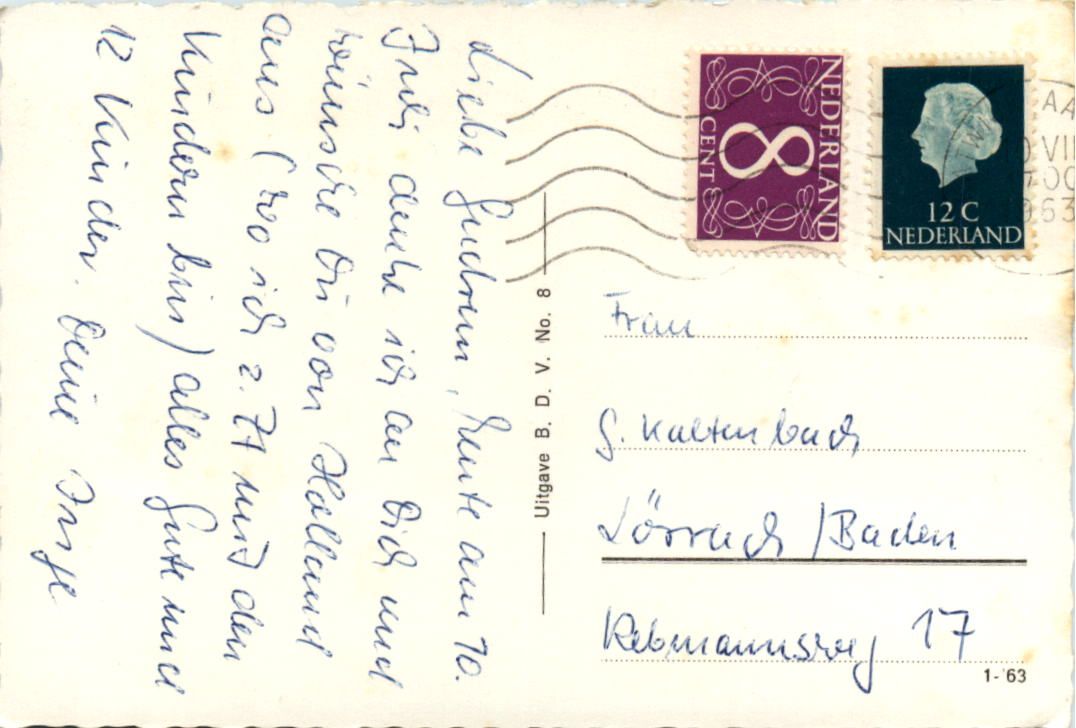 Liebe Gudrun, heute am 10.
Juli denke ich an Dich und
wünsche Dir von Holland
aus (wo ich z. Zt mit den
Kindern bin) alles Gute und
12 Kinder. Deine Inge
Uitgave B. D. V. No. 8
NEDERLAND
8
CENT
12 C
NEDERLAND
AA
VII
963
Frau
G. Kaltenbach
Lörrach/Baden
Rebmannsweg 17
1-'63